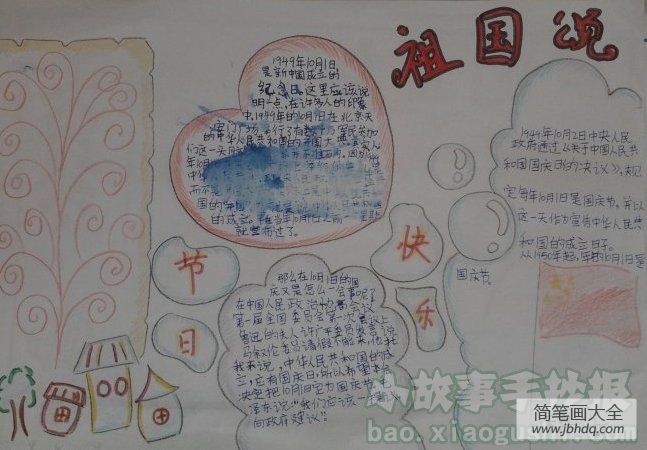 祖国颂
1949年10月1日,
是新中国成立的
纪念日。这里应该说
明一点,在许多人的印象
中,1949年的10月1日在北京天
安门广场举行了有数十万军民参加
的中华人民共和国
们这一天
年10月
中华
而不是
国的
的成立。在当年10月1日之前一个星期
就宣布过了。
节
日
快
乐
那么在10月1日的国
庆又是怎么一会事呢?
在中国人民政治协商会议
第一届全国委员会第一次会议上
鲁迅的夫人许广平委员发言说
马叙伦委员请假不能来,他托
我来说,中华人民共和国的成
立,应有国庆日,所以希望本会
决定把10月1日定为国庆节,毛
泽东说“我们应该一提议
向政府建议”。
1949年10月2日中央人民
政府通过《关于中国人民共
和国国庆日的决议》,规
定每年10月1日是国庆节,并以
这一天作为宣传中华人民共
和国的成立日子。
从1950年起,年的10月1日是
国庆节。
小故事手抄报
bao.xiaogushi.com
简笔画大全
www.jbhdq.com